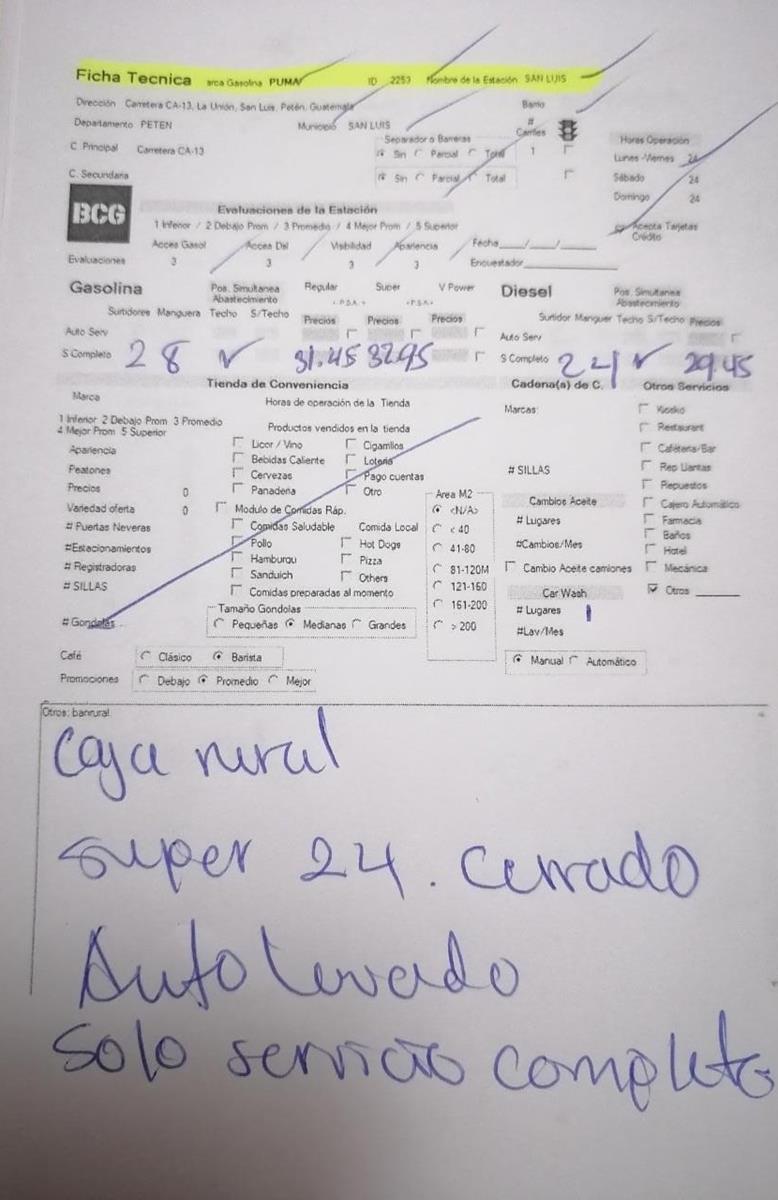 Ficha Tecnica arca Gasolina PUMA ID 2253 Nombre de la Estación SAN LUIS
Dirección Carretera CA-13, La Unión, San Luis, Petén, Guatemala Barrio
Departamento PETEN Municipio SAN LUIS # Carriles
C. Principal Carretera CA-13 Separador o Barreras Sin Parcial Total 1 Horas Operación
Lunes -Viernes 24
C. Secundaria Sin Parcial Total Sábado 24
Domingo 24
BCG Evaluaciones de la Estación Acepta Tarjetas Crédito
1 Inferior / 2 Debajo Prom / 3 Promedio / 4 Mejor Prom / 5 Superior
Acces Gasol Acces Dsl Visibilidad Apariencia Fecha___/___/___
Evaluaciones 3 3 3 3 Encuestador
Gasolina Pos. Simultanea Abastecimiento Regular Super V Power Diesel Pos. Simultanea Abastecimiento
Surtidores Manguera Techo S/Techo Precios Precios Precios Surtidor Manguer Techo S/Techo Precios
Auto Serv Auto Serv
S Completo 2 8 ✓ 31.45 32.95 S Completo 2 4 ✓ 29.45
Tienda de Conveniencia Cadena(s) de C. Otros Servicios
Marca Horas de operación de la Tienda Marcas: Kiosko
1 Inferior 2 Debajo Prom 3 Promedio Productos vendidos en la tienda Restaurant
4 Mejor Prom 5 Superior
Apariencia Licor / Vino Cigarrillos Cafeteria/Bar
Peatones Bebidas Caliente Loteria # SILLAS Rep Llantas
Cervezas Pago cuentas Repuestos
Precios 0 Panaderia Otro Area M2 Cambios Aceite Cajero Automático
Variedad oferta 0 Modulo de Comidas Ráp. <N/A> # Lugares Farmacia
# Puertas Neveras Comidas Saludable Comida Local < 40 Baños
#Estacionamientos Pollo Hot Dogs 41-80 #Cambios/Mes Hotel
# Registradoras Hamburgu Pizza 81-120M Cambio Aceite camiones Mecánica
# SILLAS Sanduich Others 121-160 Car Wash Otros
Comidas preparadas al momento
Tamaño Gondolas 161-200 # Lugares 1
# Gondolas Pequeñas Medianas Grandes > 200 #Lav/Mes
Café Clásico Barista Manual Automático
Promociones Debajo Promedio Mejor
Otros: banrural
Caja rural
Super 24. Cerrado
Auto lavado
Solo servicio completo